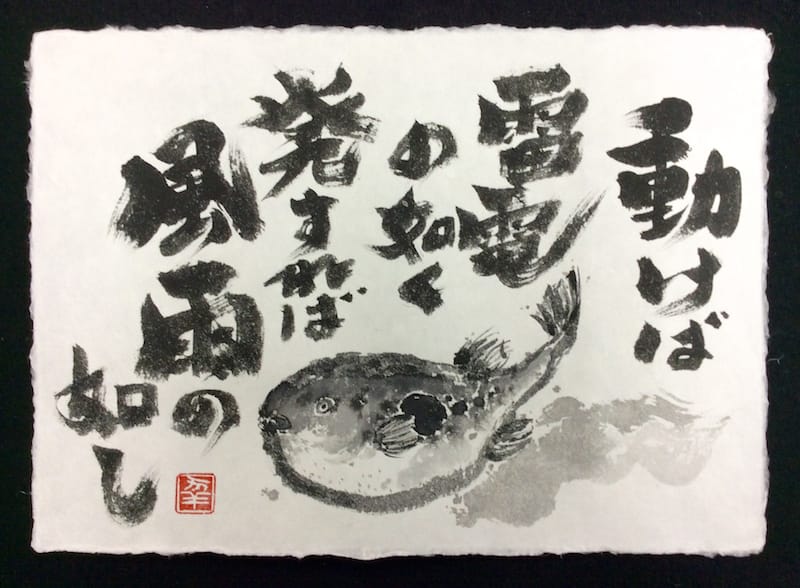 動けば
雷電
の如く
発すれば
風雨の
如し